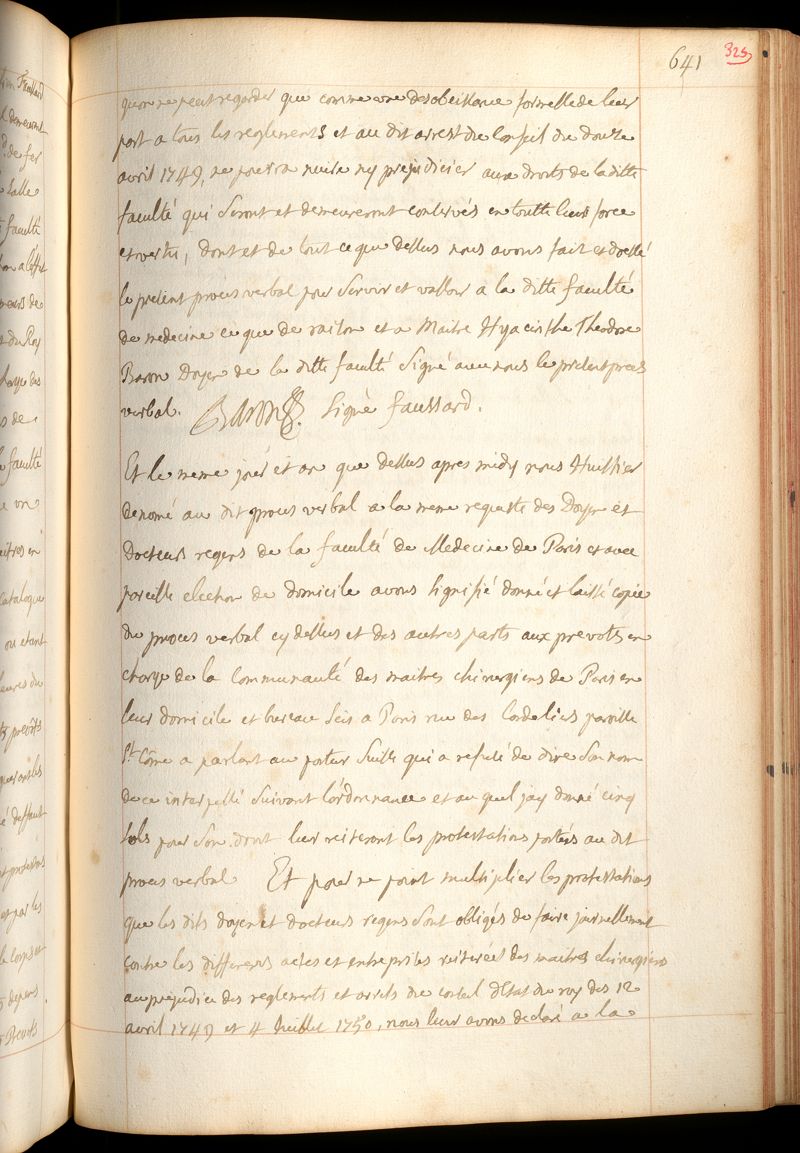 641
325
qu'on ne peut regarder que comme une desobeissance formelle de leur
part a tous les reglements et au dit arrest du Conseil du douze
avril 1749, ne pourra nuire ny prejudicier aux droits de la ditte
faculté qui Seront et demeureront conservés en toutte leur force
et vertu, dont et de tout ce que dessus nous avons fait et dressé
le present procès verbal pour Servir et valloir a la ditte faculté
de medecine ce que de raison et a Maitre Hyacinthe Theodore
Baron Doyen de la ditte faculté Signé avec nous le present proces
verbal. Baron. Signé faussard.
Et le meme jour et an que dessus apres midy nous Huissier
denomé au dit proces verbal a la meme requeste des Doyen et
Docteurs regens de la faculté de Medecine de Paris et avec
pareille election de domicile avons signifié donné et laissé copie
du proces verbal cy dessus et des autres parts aux prevots en
charge de la Communauté des maitres chirurgiens de Paris en
leur domicile et bureau Scis a Paris rue des Cordeliers paroisse
St. Côme a parlant au portier Suisse qui a refusé de dire Son nom
de ce interpellé Suivant l'ordonnance et au quel jay donné cinq
Sols pour Son droit leur reiteront les protestations portées au dit
proces verbal Et pour ne point multiplier les protestations
que les dits doyen et docteurs regens Sont obligés de faire journellement
contre les differens actes et entreprises reiterées des maitres chirurgiens
au prejudice des reglements et arrets du conseil d'Estat du roy des 12
avril 1749 et 4 Juillet 1750, nous leur avons declaré a la